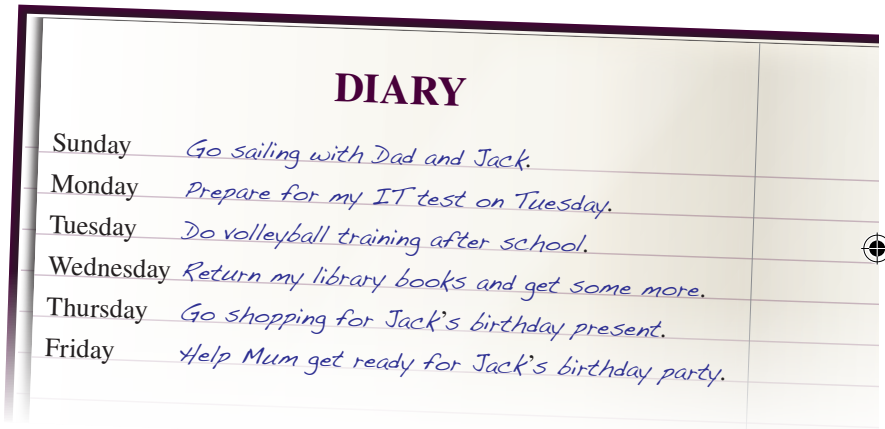 DIARY
Sunday Go sailing with Dad and Jack.
Monday Prepare for my IT test on Tuesday.
Tuesday Do volleyball training after school.
Wednesday Return my library books and get some more.
Thursday Go shopping for Jack's birthday present.
Friday Help Mum get ready for Jack's birthday party.